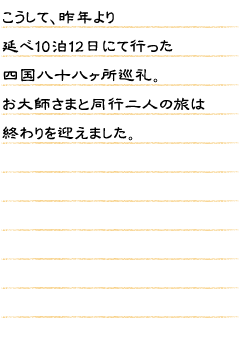 こうして、昨年より
延べ10泊12日にて行った
四国八十八ヶ所巡礼。
お大師さまと同行二人の旅は
終わりを迎えました。